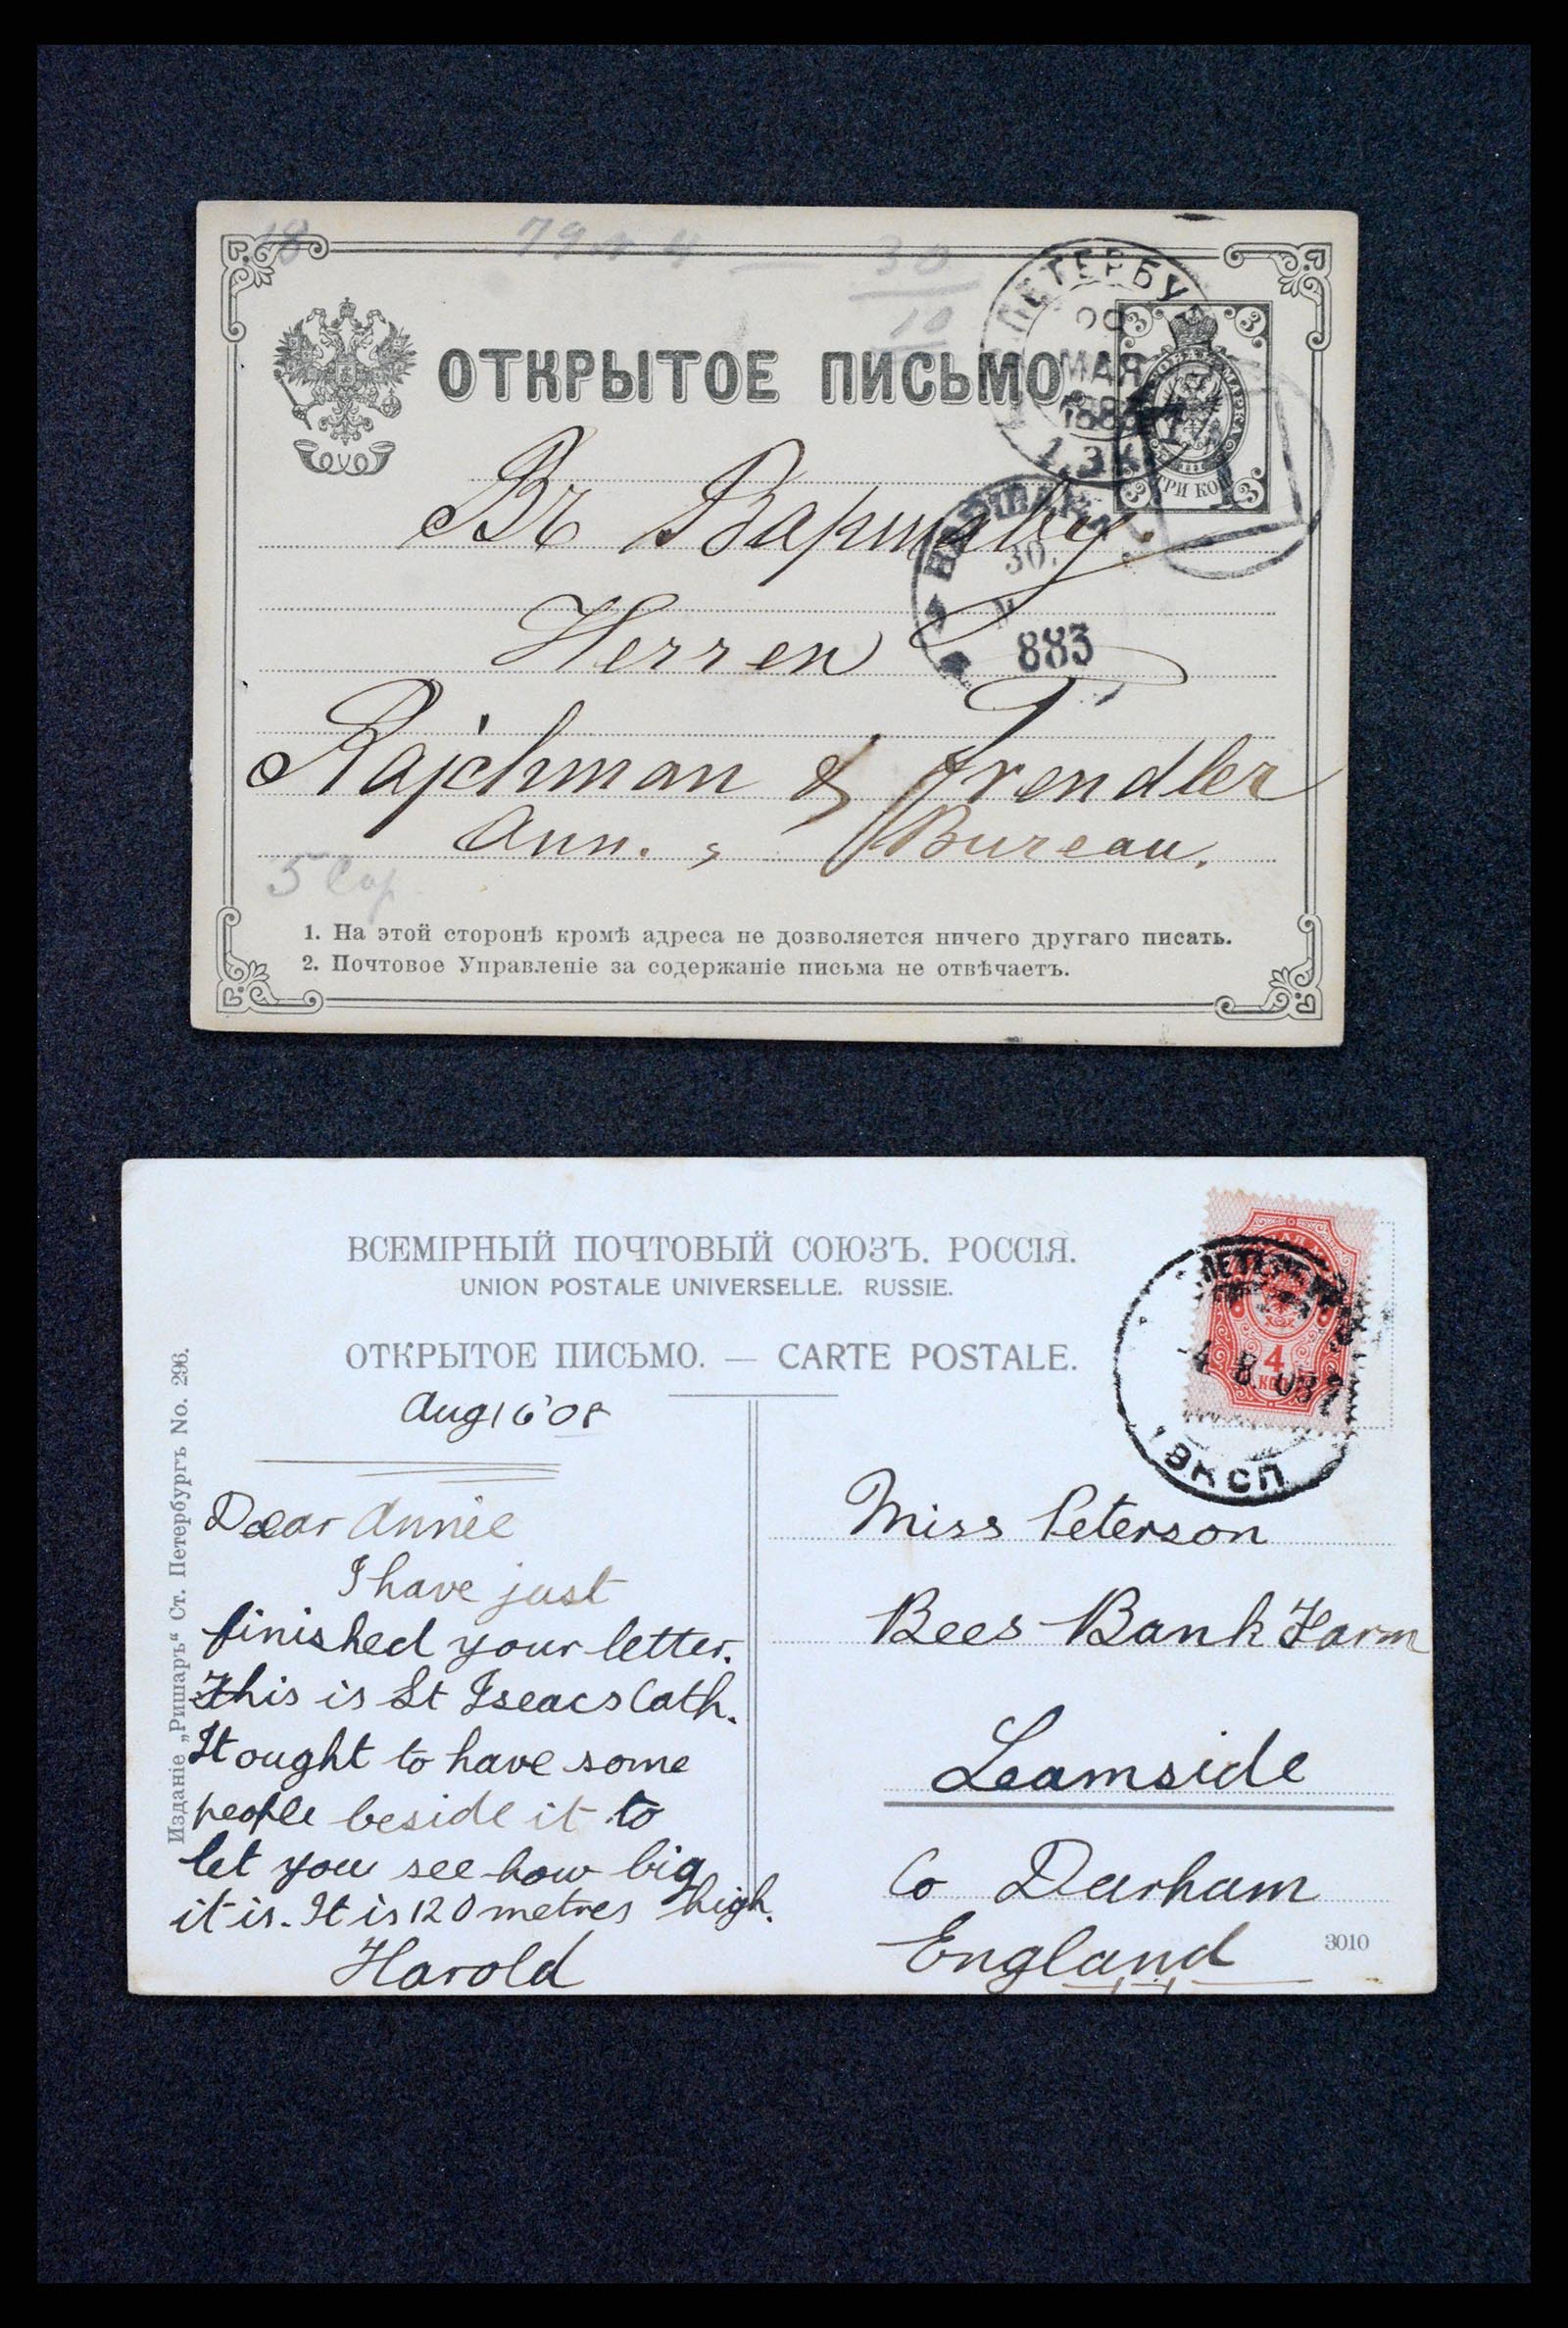 18
30
10
ОТКРЫТОЕ ПИСЬМО
3 3
МАРКА
ТРИ КОП
3 3
ПЕТЕРБУ
МАЯ
1883
Въ Варшаву.
30.
V
883
Herren
Rajchman & Frendler
Ann. Bureau.
5 Cop
1. На этой сторонѣ кромѣ адреса не дозволяется ничего другаго писать.
2. Почтовое Управленіе за содержаніе письма не отвѣчаетъ.
ВСЕМІРНЫЙ ПОЧТОВЫЙ СОЮЗЪ. РОССІЯ.
UNION POSTALE UNIVERSELLE. RUSSIE.
ОТКРЫТОЕ ПИСЬМО. — CARTE POSTALE.
4
-4. 8. 08
ЭКСП
Издание „Ришаръ“ Ст. Петербургъ No. 296.
Aug 16 '08
Dear Annie
I have just
finished your letter.
This is St Iseacs Cath.
It ought to have some
people beside it to
let you see how big
it is. It is 120 metres high.
Harold
Miss Peterson
Bees Bank Farm
Leamside
Co Durham
England
3010